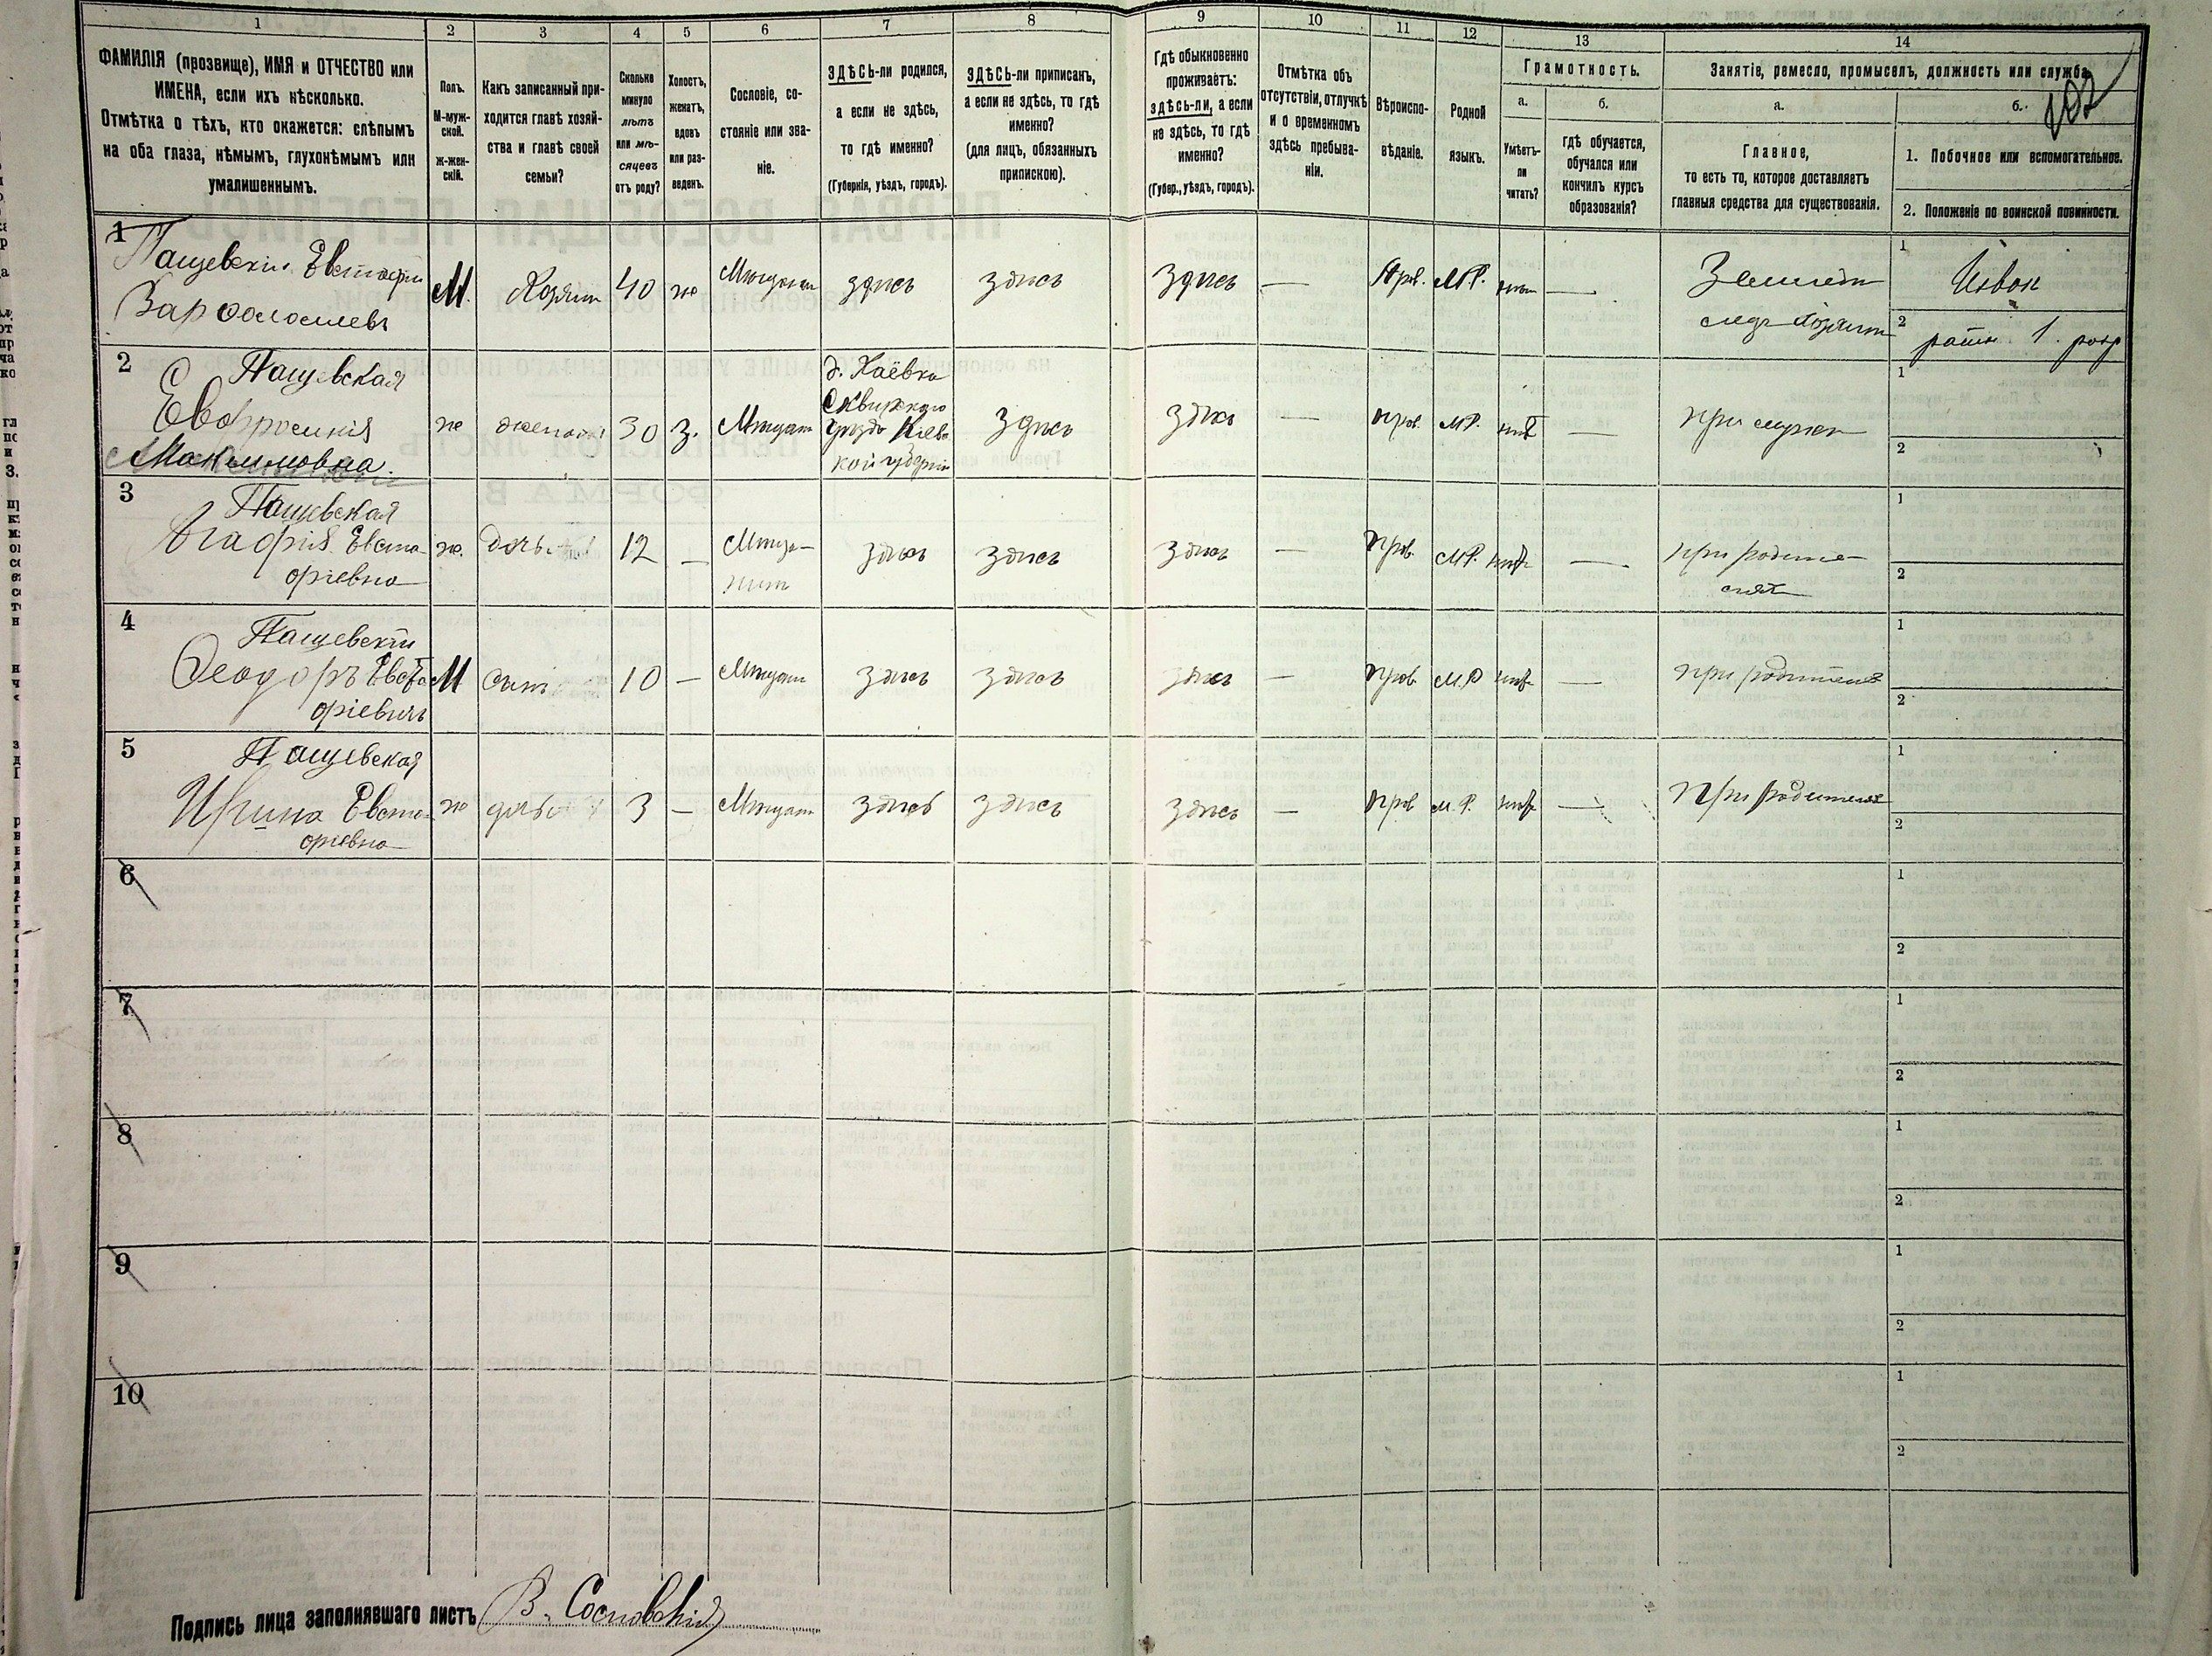 1
2
3
4
5
6
7
8
9
10
11
12
13
14
ФАМИЛІЯ (прозвище), ИМЯ и ОТЧЕСТВО или
ИМЕНА, если ихъ нѣсколько.
Отмѣтка о тѣхъ, кто окажется: слѣпымъ
на оба глаза, нѣмымъ, глухонѣмымъ или
умалишеннымъ.
Полъ.
М-муж-
ской.
ж-жен-
скій.
Какъ записанный при-
ходится главѣ хозяй-
ства и главѣ своей
семьи?
Сколько
минуло
лѣтъ
или мѣ-
сяцевъ
отъ роду?
Холостъ,
женатъ,
вдовъ
или раз-
веденъ.
Сословіе, со-
стояніе или зва-
ніе.
ЗДѢСЬ-ли родился,
а если не здѣсь,
то гдѣ именно?
(Губернія, уѣздъ, городъ).
ЗДѢСЬ-ли приписанъ,
а если не здѣсь, то гдѣ
именно?
(для лицъ, обязанныхъ
припискою).
Гдѣ обыкновенно
проживаетъ:
здѣсь-ли, а если
не здѣсь, то гдѣ
именно?
(Губер., уѣздъ, городъ).
Отмѣтка объ
отсутствіи, отлучкѣ
и о временномъ
здѣсь пребыва-
ніи.
Вѣроиспо-
вѣданіе.
Родной
языкъ.
Грамотность.
а.
б.
Умѣетъ-
ли
читать?
гдѣ обучается,
обучался или
кончилъ курсъ
образованія?
Занятіе, ремесло, промыселъ, должность или служба.
а.
б.
102
Главное,
то есть то, которое доставляетъ
главныя средства для существованія.
1. Побочное или вспомогательное.
2. Положеніе по воинской повинности.
1
Пащевскій Евстафій
М. 40 ж здѣсь здѣсь здѣсь — Прав. М.Р. —
1
2
ратн. 1. разр
2
Пащевская
Евфросинія
Максимовна.
ж жена 30 З. Мѣщан
д. Каёвка
Сквирского
уѣзда Киевс
кой губерніи
здѣсь здѣсь — прав. М.Р. — при мужѣ
1
2
3
Пащевская
Агафія Евста-
фіевна
ж. дочь 12 — здѣсь здѣсь здѣсь — прав. М.Р. —
при родите-
ляхъ
1
2
4
Пащевскій
Феодоръ Евста
фіевичъ
М сынъ 10 — Мѣщан здѣсь здѣсь здѣсь — прав. М.Р —
1
2
5
Пащевская
Ирина Евста-
фіевна
ж дочь 3 — Мѣщан здѣсь здѣсь здѣсь — прав М.Р. —
1
2
6
1
2
7
1
2
8
1
2
9
1
2
10
1
2
Подпись лица заполнявшаго листъ В. Сосновскій